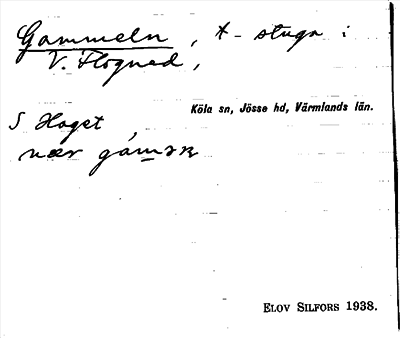 Gammeln, x- stuga i
V. Flogned,
Köla sn, Jösse hd, Värmlands län.
S Haget
ELOV SILFORS 1938.